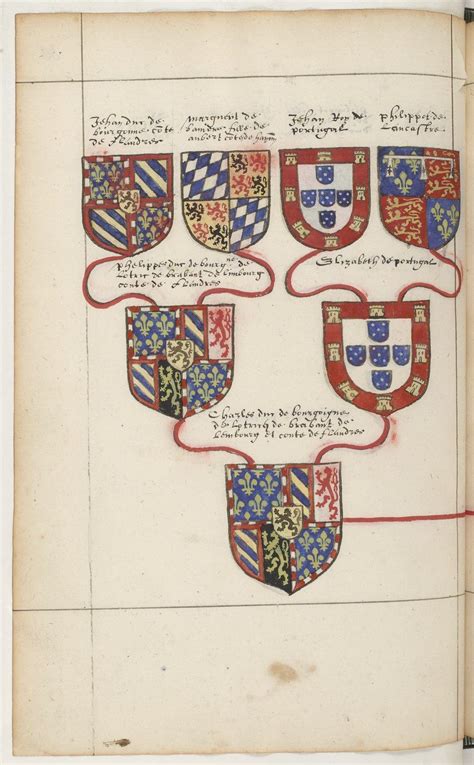 Jehan duc de
bourgonne cote
de flandres
margueritt de
baviere fille de
aubert cote de hayn
Jehan Roy de
portugal
Philippot de
Lancastre
Phelippes duc de bourgne de
Lotric de brabant de lembourg
conte de flandres
Elizabeth de portugal
Charles duc de bourgoigne
de Lotrich de brabant de
Lembourg et conte de flandres